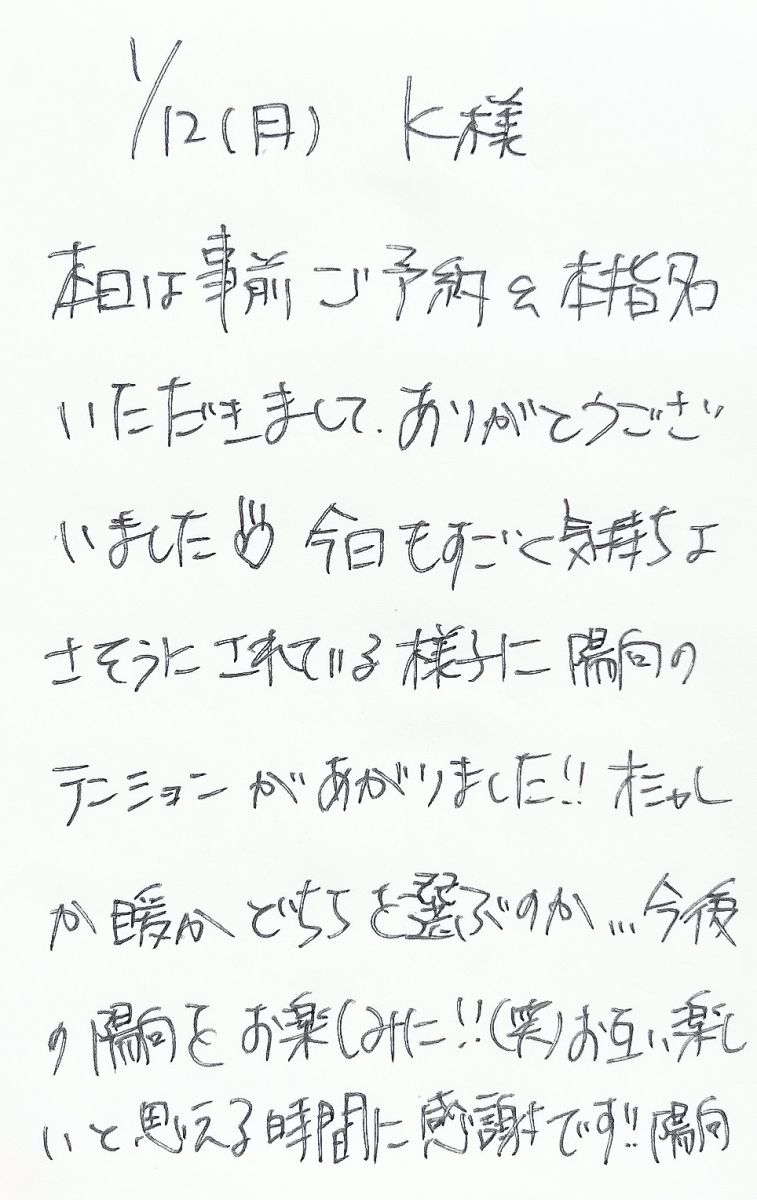 1/12(月) K様
本日は事前ご予約&本指名
いただきまして、ありがとうござ
いました 今日もすごく気持ちよ
さそうにされている様子に 陽向の
テンションがあがりました!! オシャレ
か 暖か どちらを選ぶのか...今後
の陽向をお楽しみに!!(笑)お互い楽し
いと思える時間に感謝です!! 陽向